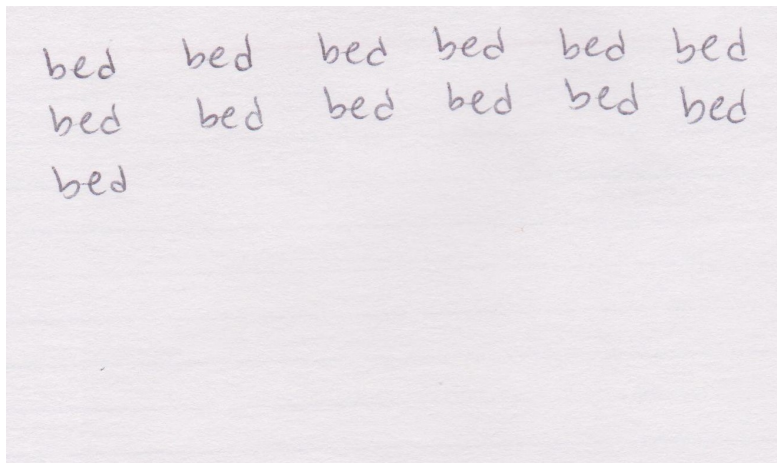 bed bed bed bed bed bed
bed bed bed bed bed bed
bed